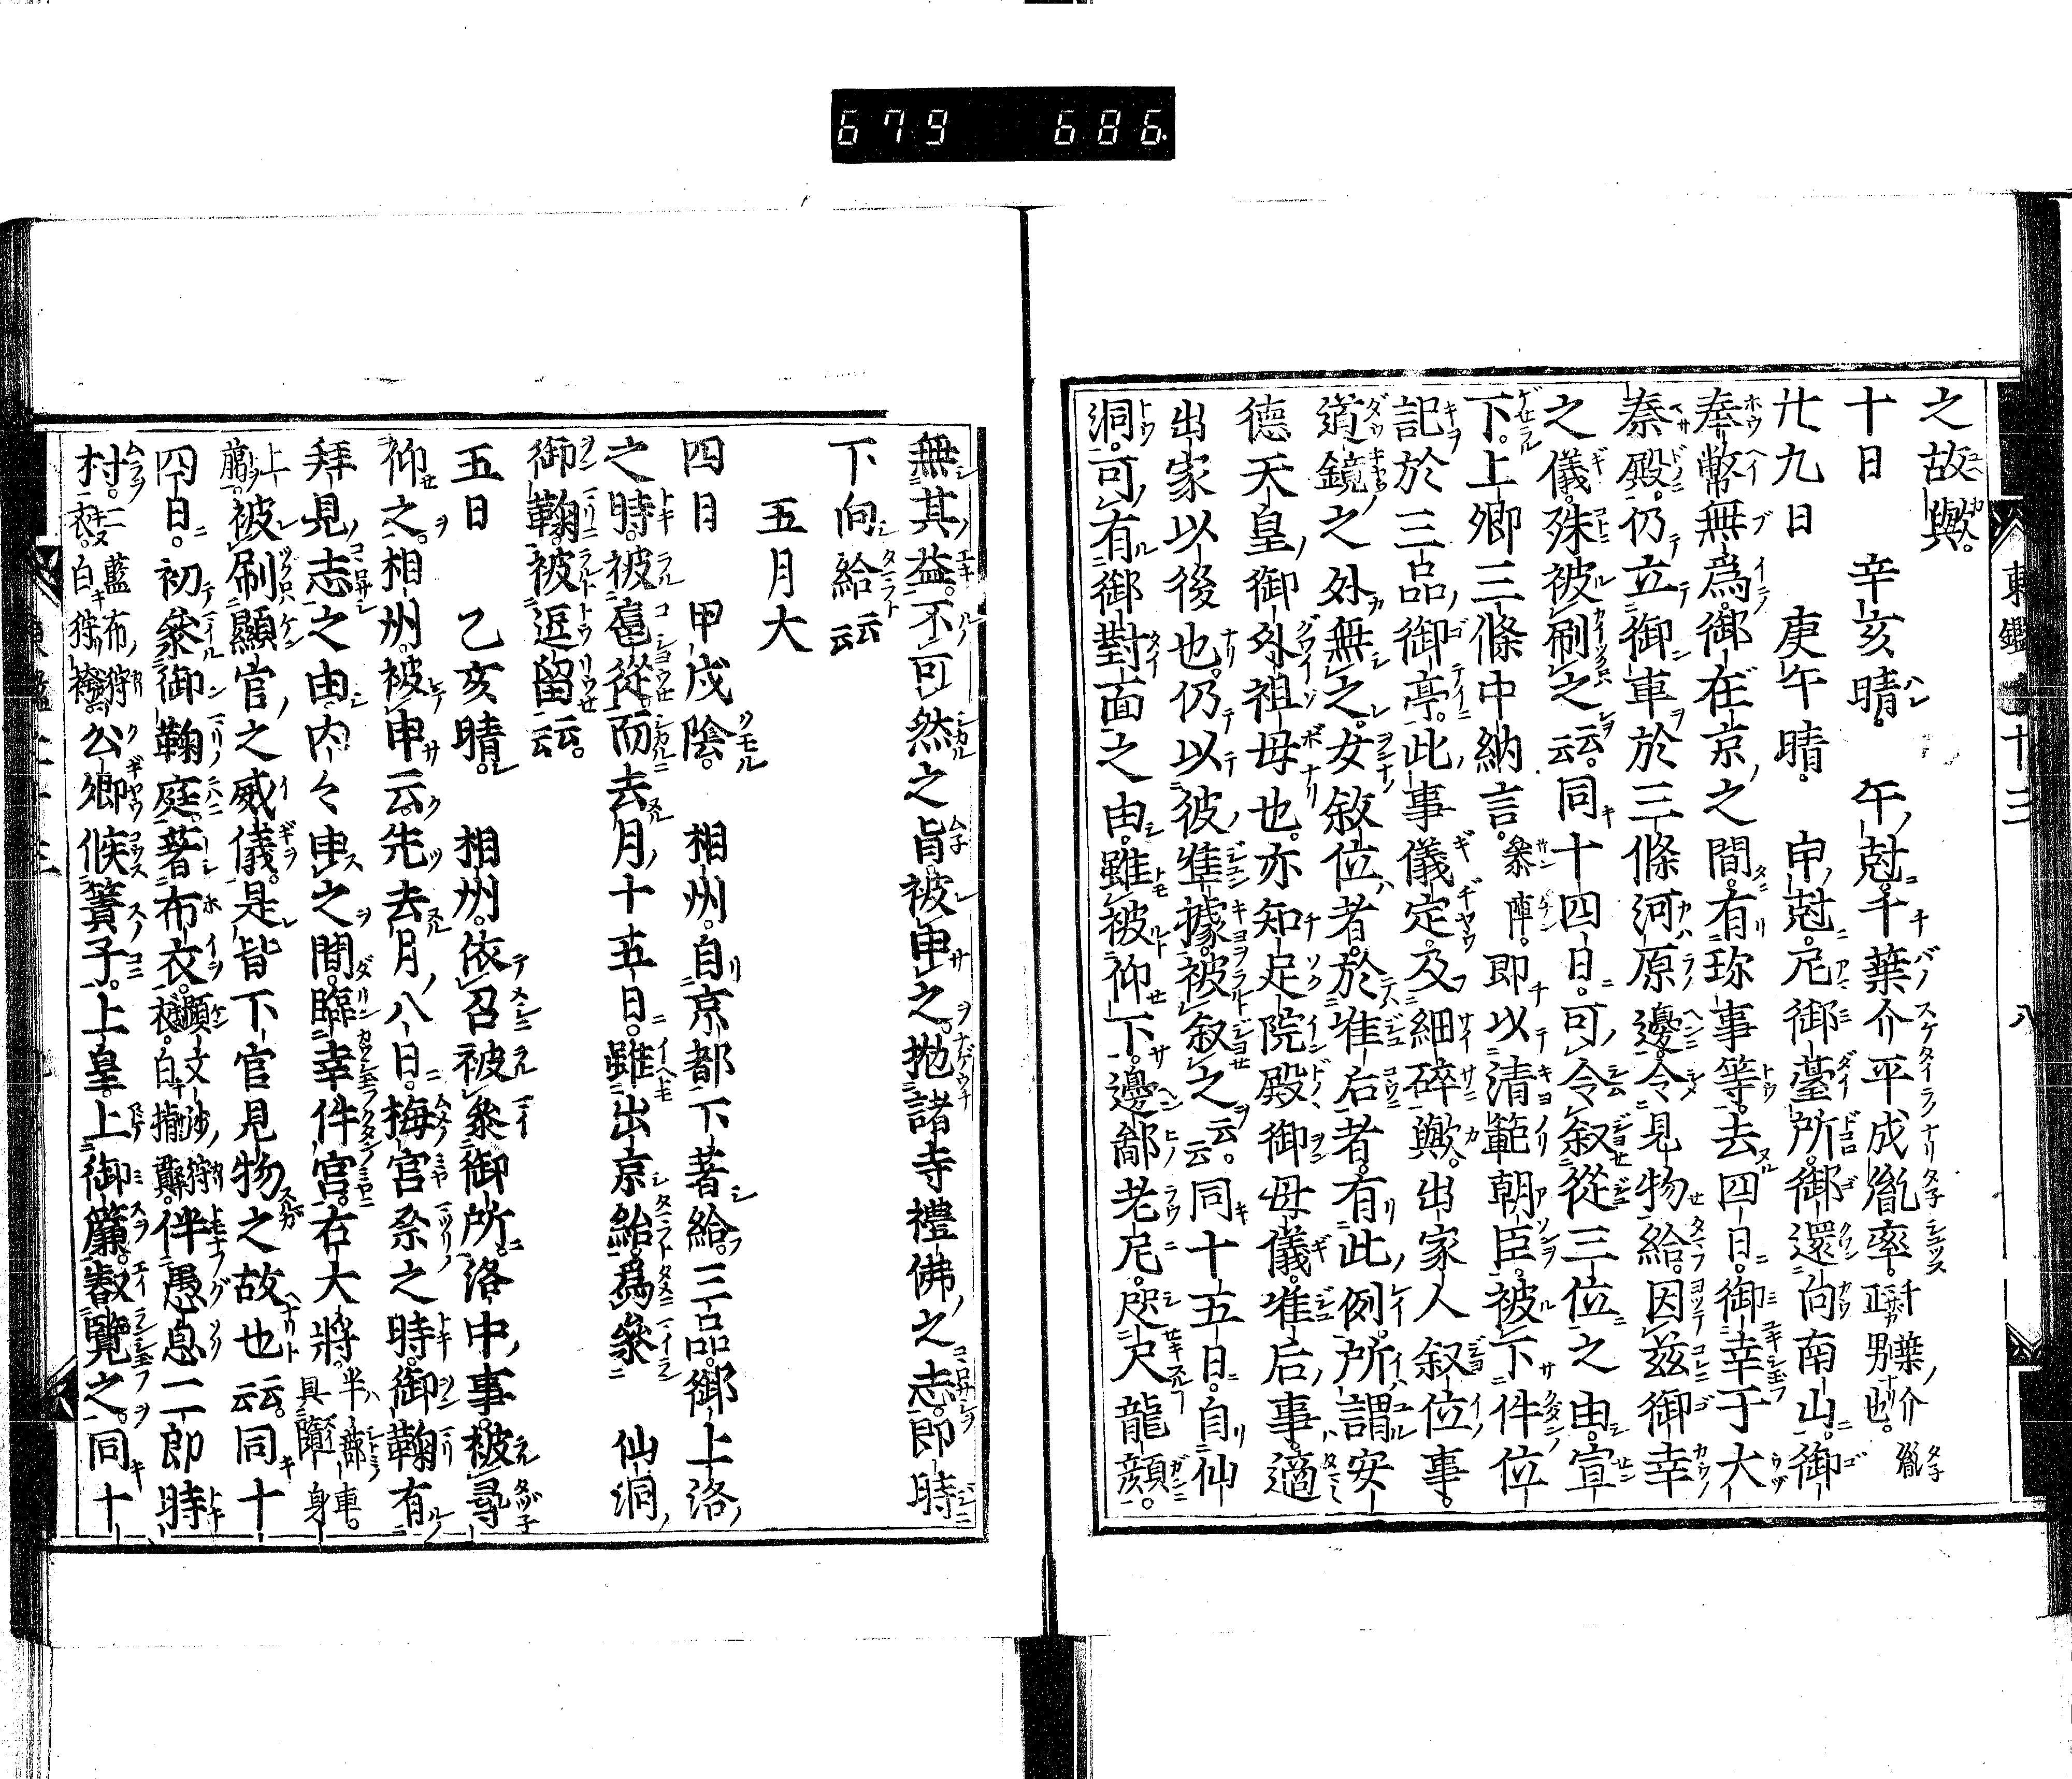 679 686
東鑑二十三 八
之故歟。
十日 辛亥晴。 午尅。千葉介平成胤率。千葉介胤正男也。
廿九日 庚午晴。 申尅。尼御臺所。御還向南山。御
奉幣無爲。御在京之間。有珍事等。去四日。御幸于大
秦殿。仍立御車於三條河原邊。令見物給。因茲御幸
之儀。殊被刷之云云。同十四日。可令叙從三位之由。宣
下。上卿三條中納言。參陣。即以清範朝臣。被下件位
記於三品御亭。此事儀定及細碎歟。出家人叙位事。
道鏡之外無之。女叙位者。於准后者。有此例。所謂安
德天皇御外祖母也。亦知足院殿御母儀。准后事。適
出家以後也。仍以彼准據。被叙之云云。同十五日。自仙
洞。可有御對面之由。雖被仰下。邊鄙老尼。咫尺龍顔。
無其益。不可然之旨。被申之。抛諸寺禮佛之志。即時
下向給云云
五月大
四日 甲戌陰。 相州。自京都下著給。三品。御上洛
之時。被扈從。而去月十五日。雖出京給。爲參 仙洞
御鞠。被逗留云云。
五日 乙亥晴。 相州。依召被參御所。洛中事。被尋
仰之。相州。被申云。先去月八日。梅宮祭之時。御鞠有
拜見志之由。内々申之間。臨幸件宮。右大將。半蔀車。具隨身
上﨟。被刷顯官之威儀。是皆下官見物之故也云云。同十
四日。初參御鞠庭。著布衣。顯文紗狩衣。白指貫。伴愚息二郎時
村。二藍布狩衣。白狩袴。公卿候簀子。上皇。上御簾。叡覽之。同十